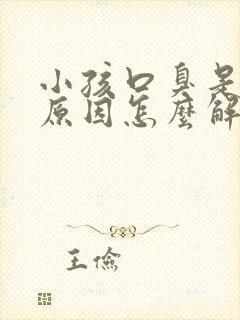 小孩口臭是
原因怎麼解
王儉